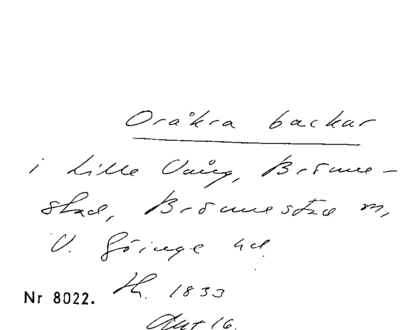 Oråkra backar
i Lille Vång, Brönne-
stad, Brönnestad sn,
V. Göinge hd.
Nr 8022. H. 1833
Akt 16.